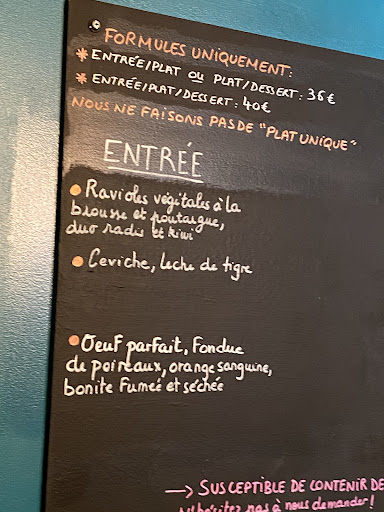 FORMULES UNIQUEMENT:
* ENTRÉE/PLAT OU PLAT/DESSERT: 36€
* ENTRÉE/PLAT/DESSERT: 40€
NOUS NE FAISONS PAS DE "PLAT UNIQUE"
ENTRÉE
• Ravioles végétales à la
brousse et poutargue,
duo radis et kiwi
• Ceviche, leche de tigre
• Oeuf parfait, Fondue
de poireaux, orange sanguine,
bonite Fumeé et séchée
→ SUSCEPTIBLE DE CONTENIR DE
N'hésitez pas à nous demander!